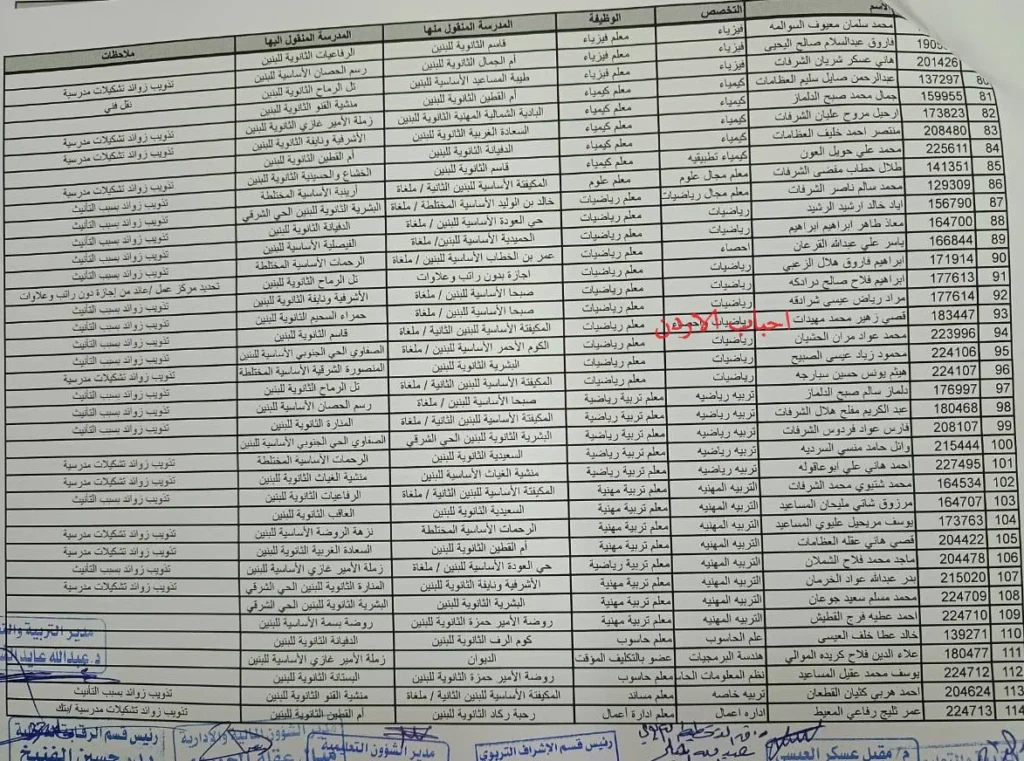 الاسم التخصص الوظيفة المدرسة المنقول منها المدرسة المنقول اليها ملاحظات
محمد سلمان معيوف السوالمه فيزياء معلم فيزياء قاسم الثانوية للبنين الرفاعيات الثانوية للبنين
1905 فاروق عبدالسلام صالح اليحيى فيزياء معلم فيزياء أم الجمال الثانوية للبنين رسم الحصان الأساسية للبنين تذويب زوائد تشكيلات مدرسية
201426 هاني عسكر شريان الشرفات فيزياء معلم فيزياء طيبة المساعيد الأساسية للبنين تل الرماح الثانوية للبنين نقل فني
80 137297 عبدالرحمن صايل سليم العظامات كيمياء معلم كيمياء أم القطين الثانوية للبنين منشية القنو الثانوية للبنين
81 159955 جمال محمد صبح الدلماز كيمياء معلم كيمياء البادية الشمالية المهنية الثانوية للبنين زملة الأمير غازي الثانوية للبنين تذويب زوائد تشكيلات مدرسية
82 173823 ارحيل مروح عليان الشرفات كيمياء معلم كيمياء السعادة الغربية الثانوية للبنين الأشرفية ونايفة الثانوية للبنين تذويب زوائد تشكيلات مدرسية
83 208480 منتصر احمد خليف العظامات كيمياء معلم كيمياء الدفيانة الثانوية للبنين أم القطين الثانوية للبنين
84 225611 محمد علي حويل العون كيمياء تطبيقيه معلم كيمياء قاسم الثانوية للبنين الخشاع والحسينية الثانوية للبنين تذويب زوائد تشكيلات مدرسية
85 141351 طلال حطاب مقضي الشرفات معلم مجال علوم معلم علوم المكيفتة الأساسية للبنين الثانية / ملغاة أرينبة الأساسية المختلطة تذويب زوائد بسبب التأنيث
86 129309 محمد سالم ناصر الشرفات معلم مجال رياضيات معلم رياضيات خالد بن الوليد الأساسية المختلطة / ملغاة البشرية الثانوية للبنين الحي الشرقي تذويب زوائد بسبب التأنيث
87 156790 اياد خالد ارشيد الرشيد رياضيات معلم رياضيات حي العودة الأساسية للبنين / ملغاة الدفيانة الثانوية للبنين تذويب زوائد بسبب التأنيث
88 164700 معاذ طاهر ابراهيم ابراهيم رياضيات معلم رياضيات الحميدية الأساسية للبنين/ ملغاة الفيصلية الأساسية للبنين تذويب زوائد بسبب التأنيث
89 166844 ياسر علي عبدالله القرعان احصاء معلم رياضيات عمر بن الخطاب الأساسية للبنين / ملغاة الرحمات الأساسية المختلطة تذويب زوائد بسبب التأنيث
90 171914 ابراهيم فاروق هلال الزعبي رياضيات معلم رياضيات اجازة بدون راتب وعلاوات تل الرماح الثانوية للبنين تحديد مركز عمل /عائد من إجازة دون راتب وعلاوات
91 177613 ابراهيم فلاح صالح درادكه رياضيات معلم رياضيات صبحا الأساسية للبنين / ملغاة الأشرفية ونايفة الثانوية للبنين تذويب زوائد بسبب التأنيث
92 177614 مراد رياض عيسى شرادقه رياضيات معلم رياضيات صبحا الأساسية للبنين / ملغاة حمراء السحيم الثانوية للبنين تذويب زوائد بسبب التأنيث
93 183447 قصي زهير محمد مهيدات احباب الاردن معلم رياضيات المكيفتة الأساسية الثانية للبنين / ملغاة قاسم الثانوية للبنين تذويب زوائد بسبب التأنيث
94 223996 محمد عواد مران الحشيان رياضيات معلم رياضيات الكوم الأحمر الأساسية للبنين / ملغاة الصفاوي الحي الجنوبي الأساسية للبنين تذويب زوائد بسبب التأنيث
95 224106 محمود زياد عيسى الصبيح رياضيات معلم رياضيات البشرية الثانوية للبنين المنصورة الشرقية الأساسية المختلطة تذويب زوائد تشكيلات مدرسية
96 224107 هيثم يونس حسين سبارجه رياضيات معلم رياضيات المكيفتة الأساسية الثانية للبنين / ملغاة تل الرماح الثانوية للبنين تذويب زوائد بسبب التأنيث
97 176997 دلماز سالم صبح الدلماز تربيه رياضيه معلم تربية رياضية صبحا الأساسية للبنين / ملغاة رسم الحصان الأساسية للبنين تذويب زوائد بسبب التأنيث
98 180468 عبد الكريم مفلح هلال الشرفات تربيه رياضيه معلم تربية رياضية المكيفتة الأساسية الثانية للبنين / ملغاة المنارة الثانوية للبنين تذويب زوائد بسبب التأنيث
99 208107 فارس عواد فردوس الشرفات تربيه رياضيه معلم تربية رياضية البشرية الثانوية للبنين الحي الشرقي الصفاوي الحي الجنوبي الأساسية للبنين
100 215444 وائل حامد منسي السرديه تربيه رياضيه معلم تربية رياضية السعيدية الثانوية للبنين الرحمات الأساسية المختلطة تذويب زوائد تشكيلات مدرسية
101 227495 احمد هاني علي ابوعاقوله تربيه رياضيه معلم تربية رياضية منشية الغياث الأساسية للبنين منشية الغياث الثانوية للبنين تذويب زوائد تشكيلات مدرسية
102 164534 محمد شتيوي محمد الشرفات التربيه المهنيه معلم تربية مهنية المكيفتة الأساسية للبنين الثانية / ملغاة الرفاعيات الثانوية للبنين تذويب زوائد بسبب التأنيث
103 164707 مرزوق شاتي مليحان المساعيد التربيه المهنيه معلم تربية مهنية السعيدية الثانوية للبنين العاقب الثانوية للبنين
104 173763 يوسف مريحيل عليوي المساعيد التربيه المهنيه معلم تربية مهنية الرحمات الأساسية المختلطة نزهة الروضة الأساسية للبنين تذويب زوائد تشكيلات مدرسية
105 204422 قصي هاني عقله العظامات التربيه المهنيه معلم تربية مهنية أم القطين الثانوية للبنين السعادة الغربية الثانوية للبنين تذويب زوائد تشكيلات مدرسية
106 204478 ماجد محمد فلاح الشملان التربيه المهنيه معلم تربية رياضية حي العودة الأساسية للبنين / ملغاة زملة الأمير غازي الأساسية للبنين تذويب زوائد بسبب التأنيث
107 215020 بدر عبدالله عواد الخرمان التربيه المهنيه معلم تربية مهنية الأشرفية ونايفة الثانوية للبنين المنارة الثانوية للبنين تذويب زوائد تشكيلات مدرسية
108 224709 محمد مسلم سعيد جوعان التربيه المهنيه معلم تربية مهنية البشرية الثانوية للبنين البشرية الثانوية للبنين الحي الشرقي
109 224710 احمد عطيه فرج القطيش التربيه المهنيه معلم تربية مهنية روضة الأمير حمزة الثانوية للبنين روضة بسمة الأساسية للبنين
110 139271 خالد عطا خلف العيسى علم الحاسوب معلم حاسوب كوم الرف الثانوية للبنين الدفيانة الثانوية للبنين
111 180477 علاء الدين فلاح كريده الموالي هندسة البرمجيات عضو بالتكليف المؤقت الديوان زملة الأمير غازي الأساسية للبنين
112 224712 يوسف محمد عقيل المساعيد نظم المعلومات الحاس معلم حاسوب روضة الأمير حمزة الثانوية للبنين البستانة الثانوية للبنين
113 204624 احمد هربي كليان القطعان تربيه خاصه معلم مساند المكيفتة الأساسية الثانية للبنين / ملغاة منشية القنو الثانوية للبنين تذويب زوائد بسبب التأنيث
114 224713 عمر ثليج رفاعي المعيط اداره اعمال معلم ادارة أعمال رحبة ركاد الثانوية للبنين أم القطين الثانوية للبنين تذويب زوائد تشكيلات مدرسية
مدير التربية والت
د. عبدالله عابد
م/ مقبل عسكر العيسى
رئيس قسم الإشراف التربوي
مدير الشؤون التعليمية
مدير الشؤون المالية والإدارية
رئيس قسم
بدر حسين الفنيخ